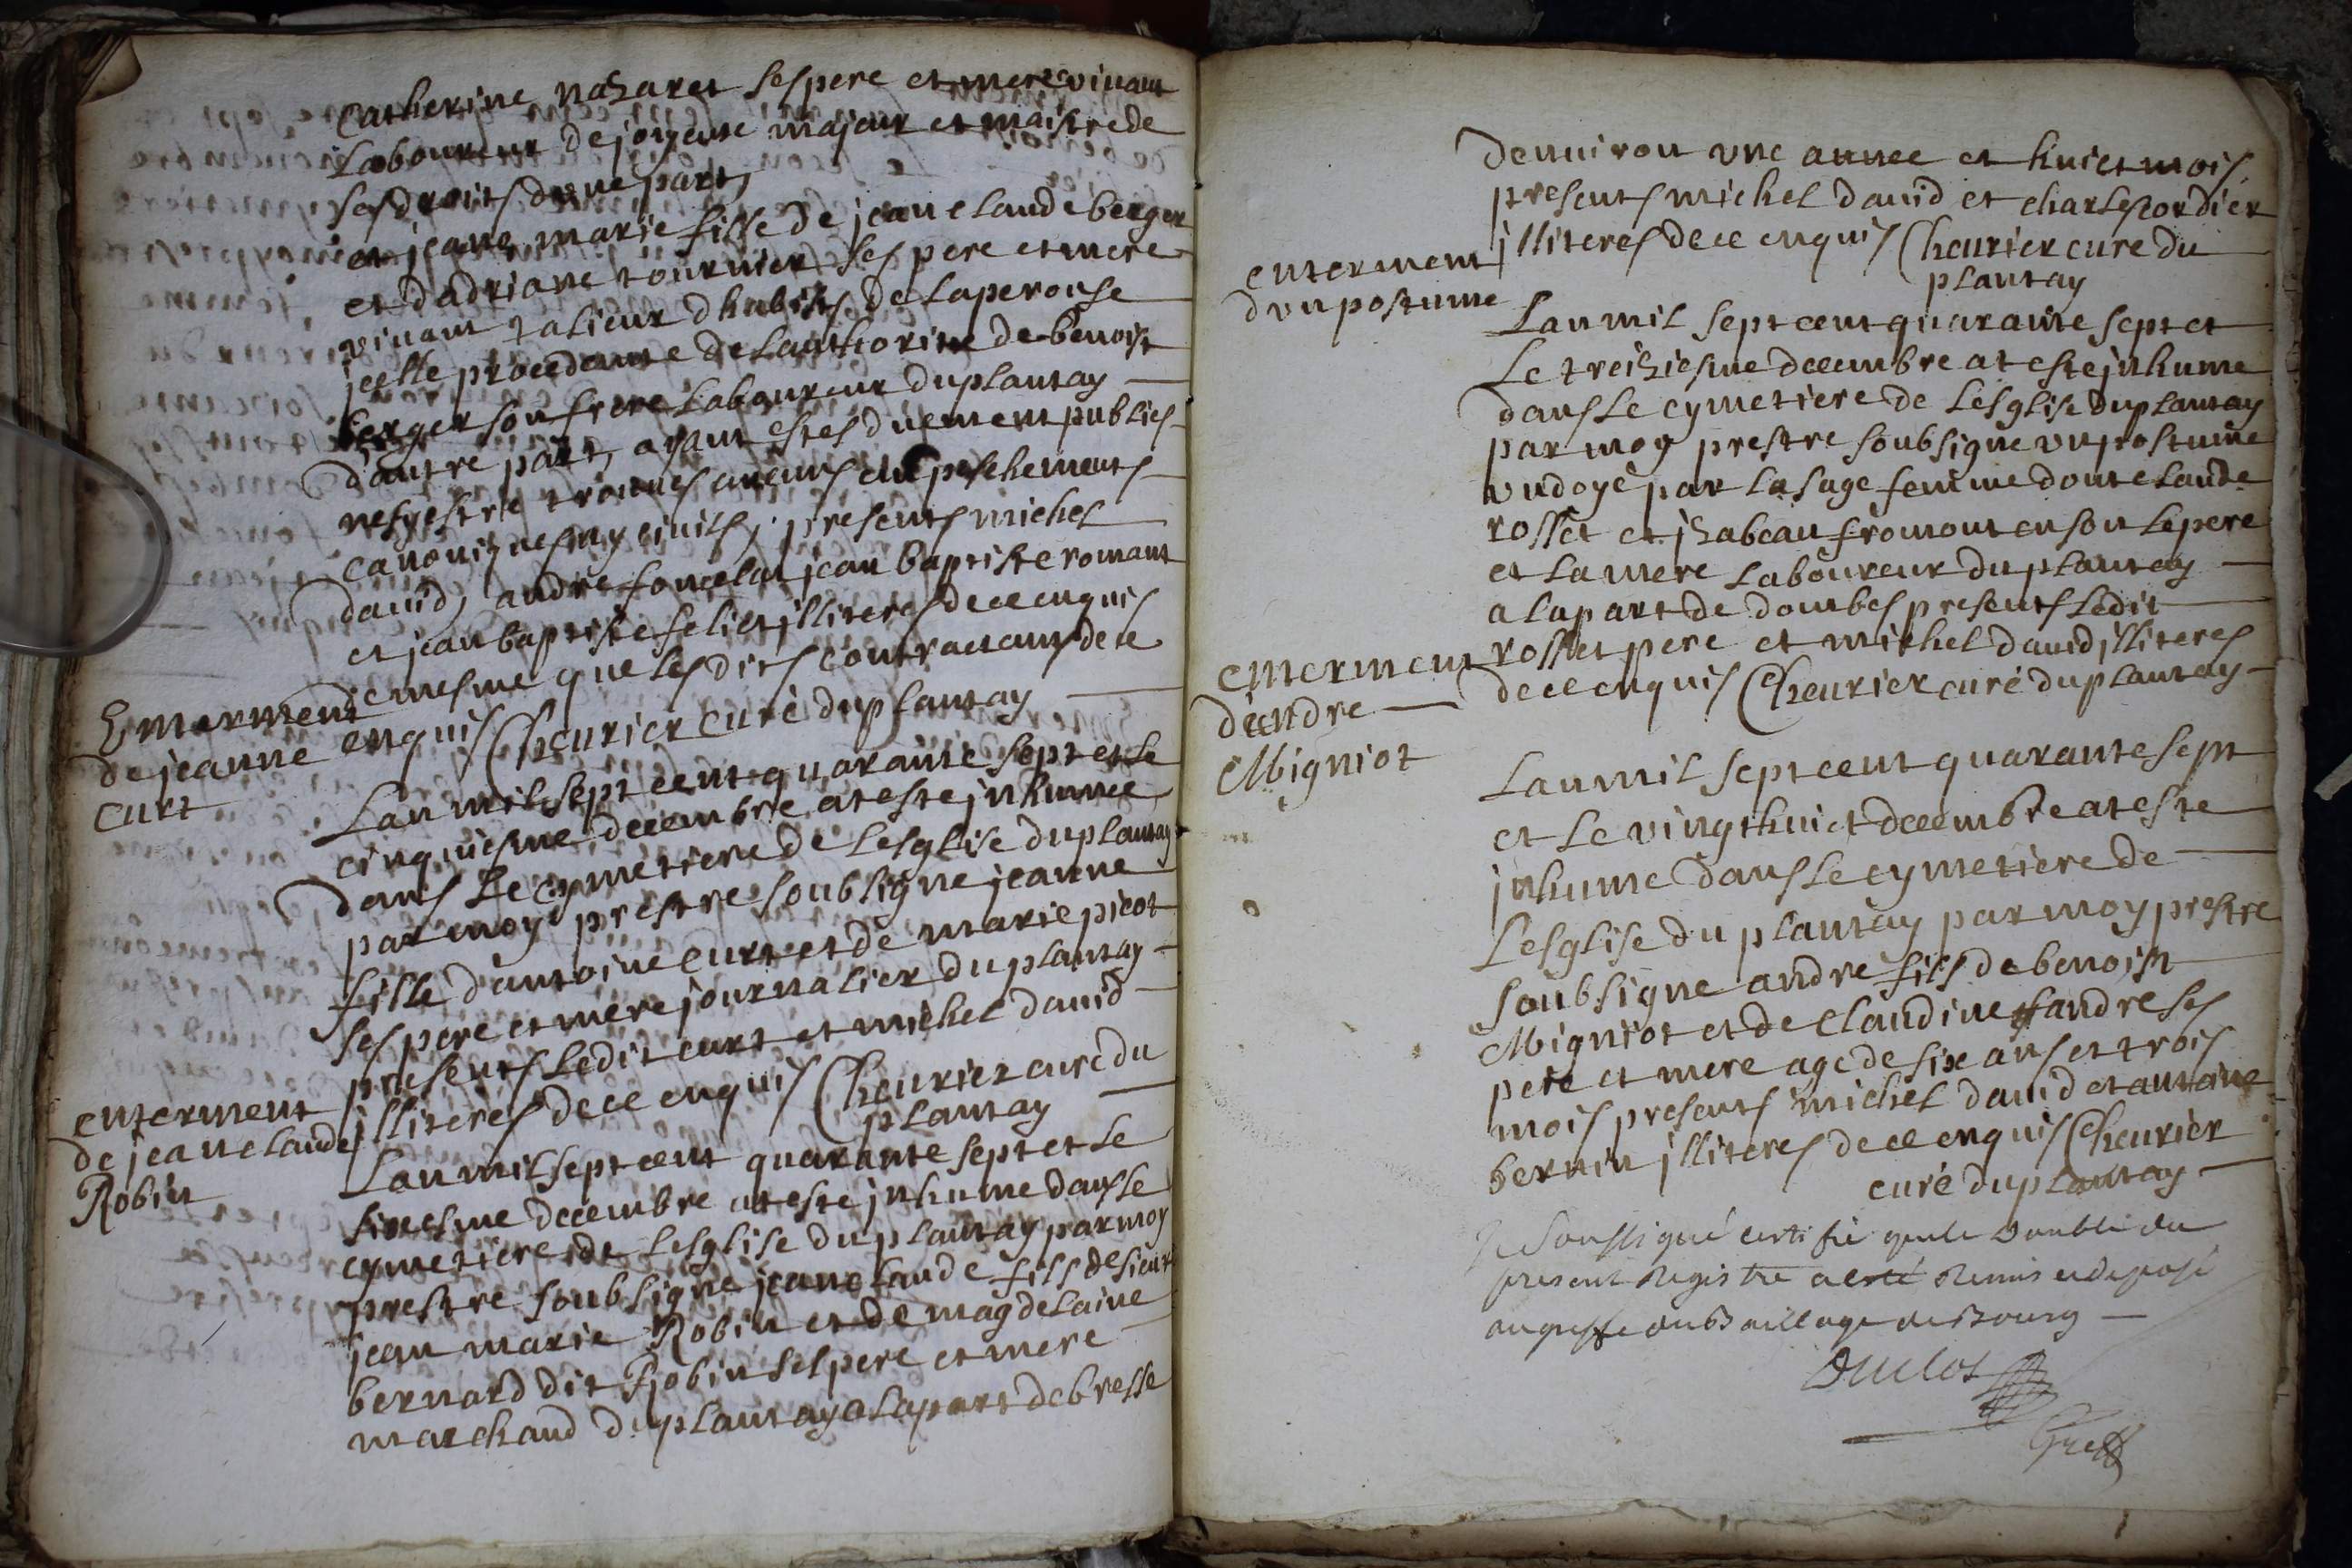 Catherine nazaret ses pere et mere vivant
Laboureur de joyeuse majeur et maistre de
ses droits dune part,
et jeane marie fille de jean claude berger
et dadriane tournier ses pere et mere
vivant talieur dhabits de laperouse
jcelle procedante de lauthorité de benoist
berger son frere laboureur duplantay
dautre part, ayant estes duement publies
nesgestre trouves aucuns empeschements
canoniques ny civils, presents michel
david, andre jean baptiste romant
et jean baptiste felix jlliteres de ce enquis
de mesme que lesdits contractans de ce
enquis Cheurier curé duplantay
Enterrement
de jeanne
curt
Lan mil sept cent quarante sept et le
cinquiesme decembre at este jnhumee
dans le cymetiere de lesglise duplantay
par moy prestre soubsigne jeanne
fille dantoine curt et de marie picot
ses pere et mere journalier du plantay
presents ledit curt et michel david
jlliteres de ce enquis Cheurier curé du
plantay
enterment
de jeanclaude
Robin
Lan mil sept cent quarante sept et le
sixiesme decembre at este jnhume dans le
cymetiere de lesglise du plantay par moy
prestre soubsigne jeanclaude fils de sieur
jean marie Robin et de magdelaine
bernard dit Robin ses pere et mere
marchand duplantay a lapart de bresse
denuiron une annee et huict mois
presents michel dauid et charles cordier
jlliteres de ce enquis Cheurier curé du
plantay
enterment
dun postume
Lan mil sept cent quarante sept et
Le treiziesme decembre at este jnhume
dans Le cymetiere de Lesglise duplantay
par moy prestre soubsigne un postume
undoyé par la sage femme dont claude
rosset et jzabeau fromont en son le pere
et la mere laboureur du plantay
a la part de dombes presents ledit
rosset pere et michel dauid jlliteres
de ce enquis Cheurier curé duplantay
enterment
dandre
Migniot
Lan mil sept cent quarante sept
et le vingt huict decembre at este
jnhume dans le cymetiere de
Lesglise du plantay par moy prestre
soubsigne andre fils de benoist
Migniot et de claudine ses
pere et mere age de six ans et trois
mois presents michel dauid et antoine
bernin jlliteres de ce enquis Cheurier
curé duplantay
Je Soussigné certifie que le double du
present Registre a esté Remis et deposé
au greffe du Baillage de Bourg
Duclos
Greff